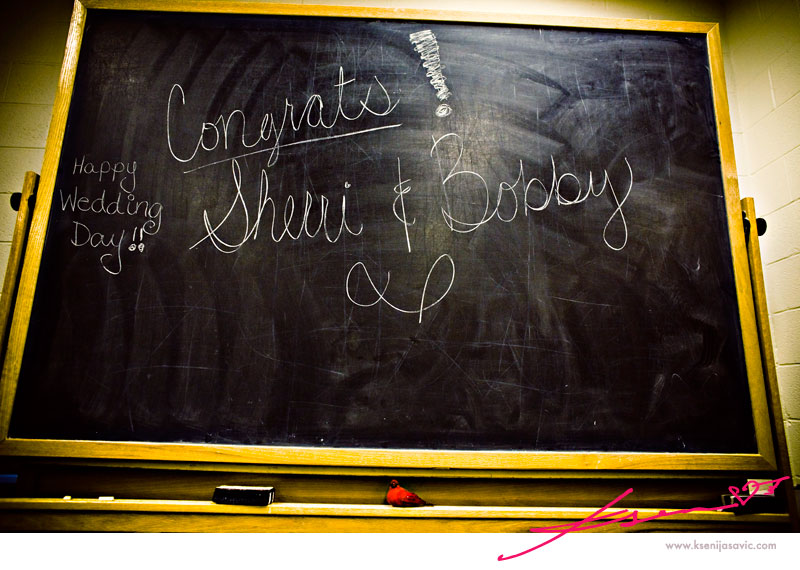 Congrats!
Sherri & Bobby
Happy
Wedding
Day!!
www.ksenijasavic.com